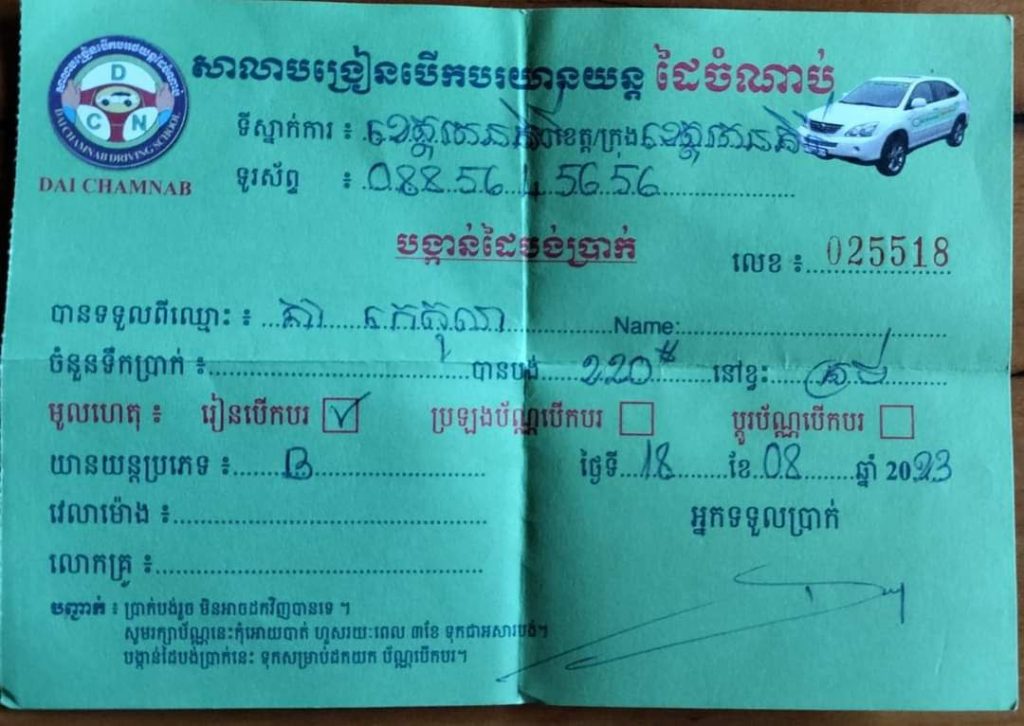 សាលាបង្រៀនបើកបរយានយន្ត ដៃចំណាប់
D
C N
DAI CHAMNAB DRIVING SCHOOL
DAI CHAMNAB
ទីស្នាក់ការ ៖ ខេត្ត ខេត្ត/ក្រុង ខេត្ត
ទូរស័ព្ទ ៖ 088 56 4 56 56
បង្កាន់ដៃបង់ប្រាក់
លេខ ៖ 025518
បានទទួលពីឈ្មោះ ៖ Name:
ចំនួនទឹកប្រាក់ ៖ បានបង់ 220$ នៅខ្វះ
មូលហេតុ ៖ រៀនបើកបរ ✓ ប្រឡងប័ណ្ណបើកបរ ប្តូរប័ណ្ណបើកបរ
យានយន្តប្រភេទ ៖ B ថ្ងៃទី 18 ខែ 08 ឆ្នាំ 2023
វេលាម៉ោង ៖
អ្នកទទួលប្រាក់
លោកគ្រូ ៖
បញ្ជាក់ ៖ ប្រាក់បង់រួច មិនអាចដកវិញបានទេ ។
សូមរក្សាប័ណ្ណនេះកុំអោយបាត់ ហួសរយៈពេល ៣ខែ ទុកជាអសារបង់។
បង្កាន់ដៃបង់ប្រាក់នេះ ទុកសម្រាប់ដកយក ប័ណ្ណបើកបរ។